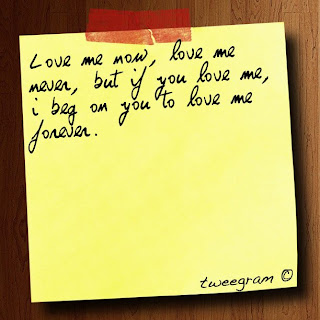 Love me now, love me
never, but if you love me,
i beg on you to love me
forever.
tweegram ©